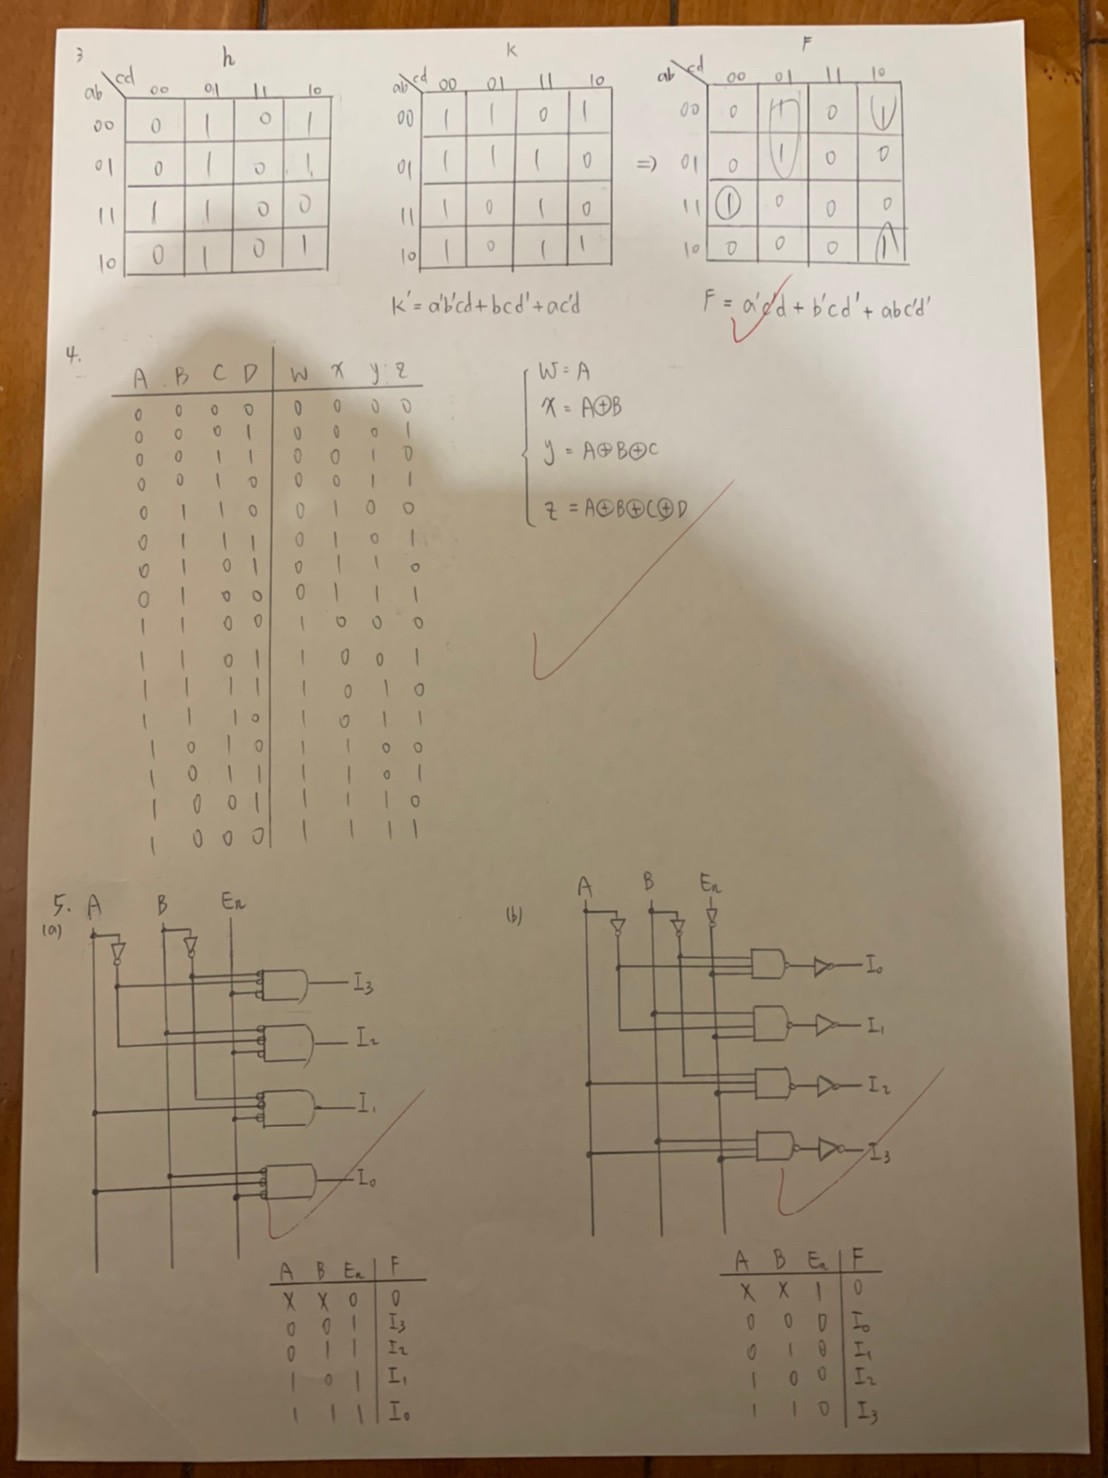 3
h
cd
ab 00 01 11 10
00 0 1 0 1
01 0 1 0 1
11 1 1 0 0
10 0 1 0 1
k
cd
ab 00 01 11 10
00 1 1 0 1
01 1 1 1 0
11 1 0 1 0
10 1 0 1 1
K' = a'b'cd + bcd' + ac'd
=>
F
ab cd 00 01 11 10
00 0 1 0 1
01 0 1 0 0
11 1 0 0 0
10 0 0 0 1
F = a'c'd + b'cd' + abc'd'
4.
A B C D W X y z
0 0 0 0 0 0 0 0
0 0 0 1 0 0 0 1
0 0 1 1 0 0 1 0
0 0 1 0 0 0 1 1
0 1 1 0 0 1 0 0
0 1 1 1 0 1 0 1
0 1 0 1 0 1 1 0
0 1 0 0 0 1 1 1
1 1 0 0 1 0 0 0
1 1 0 1 1 0 0 1
1 1 1 1 1 0 1 0
1 1 1 0 1 0 1 1
1 0 1 0 1 1 0 0
1 0 1 1 1 1 0 1
1 0 0 1 1 1 1 0
1 0 0 0 1 1 1 1
W = A
X = A⊕B
y = A⊕B⊕C
z = A⊕B⊕C⊕D
5.
(a)
A B En
I3
I2
I1
I0
A B En F
X X 0 0
0 0 1 I3
0 1 1 I2
1 0 1 I1
1 1 1 I0
(b)
A B En
I0
I1
I2
I3
A B En F
X X 1 0
0 0 0 I0
0 1 0 I1
1 0 0 I2
1 1 0 I3